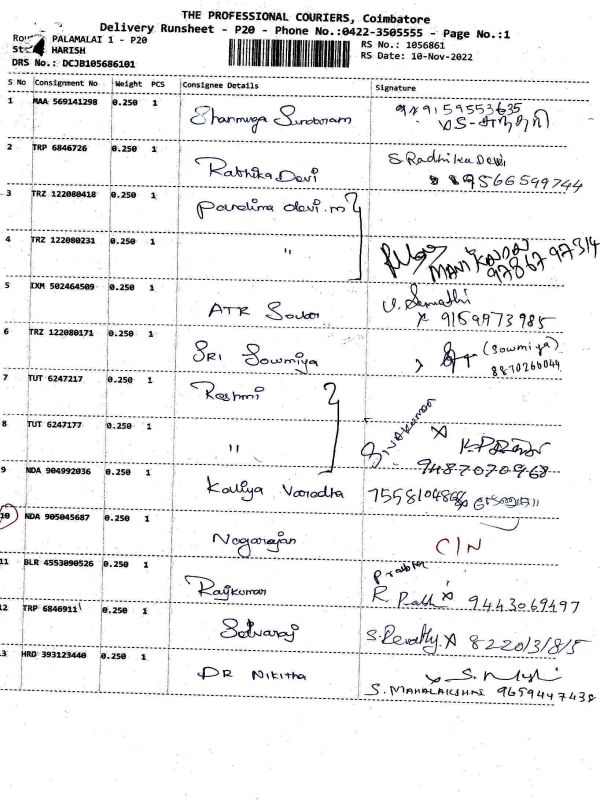 THE PROFESSIONAL COURIERS, Coimbatore
Delivery Runsheet - P20 - Phone No.:0422-3505555 - Page No.:1
PALAMALAI 1 - P20
RS No.: 1056861
HARISH
RS Date: 10-Nov-2022
DRS No.: DCJB105686101
S No Consignment No Weight PCS Consignee Details Signature
1 MAA 569141298 0.250 1
9159553635
2 TRP 6846726 0.250 1 Rathika Devi S. Radhika Devi
9566599744
3 TRZ 122080418 0.250 1 devi.m
4 TRZ 122080231 0.250 1 "
MANIKANDAN
9786797314
5 IXM 502464509 0.250 1 ATR
9159973985
6 TRZ 122080171 0.250 1 SRI Sowmiya (Sowmiya)
8870266049
7 TUT 6247217 0.250 1 Reshmi
8 TUT 6247177 0.250 1 " Sivakumar
9487070968
9 NDA 904992036 0.250 1 Kaliya Varadha
10 NDA 905045687 0.250 1 Nagarajan C/N
11 BLR 4553090526 0.250 1 Rajkumar
9443069497
12 TRP 6846911 0.250 1 Selvaraj S. Revathy x 8220131815
13 HRD 393123440 0.250 1 DR Nikitha
S. MAHALAKSHMI 9659447438